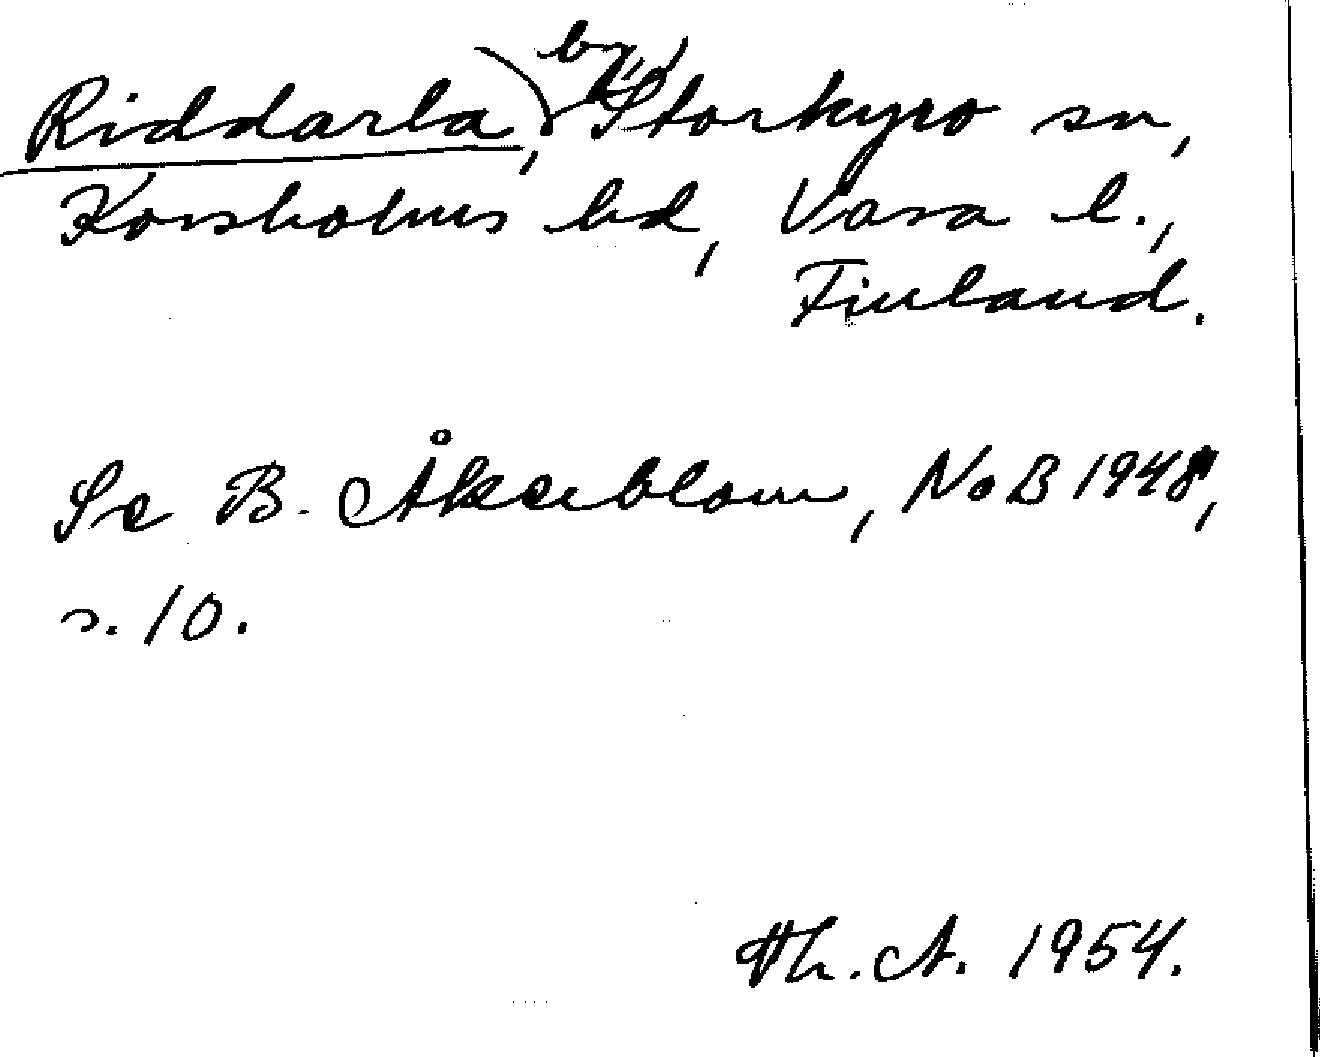 Riddarla, by, Storkyro sn,
Korsholms hd, Vasa l.,
Finland.
Se B. Åkerblom, NoB 1948,
s. 10.
Th. A. 1954.